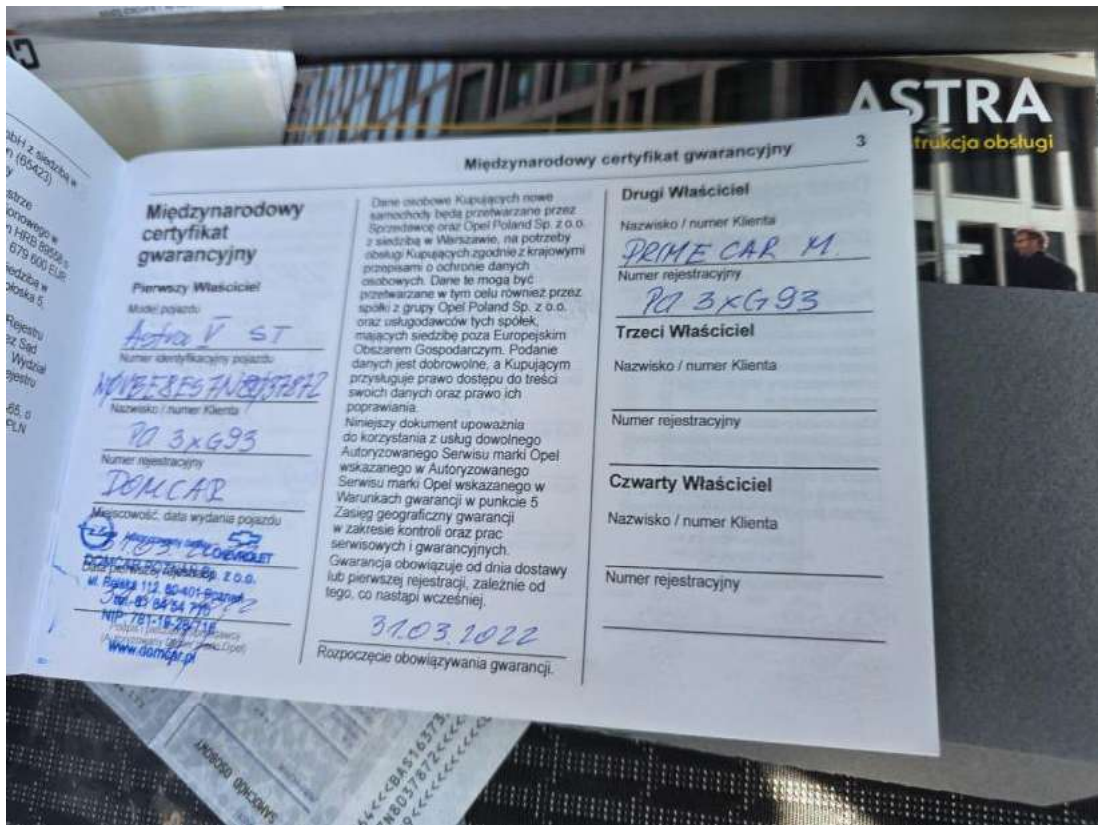 ASTRA
trukcja obsługi
Międzynarodowy certyfikat gwarancyjny
3
Międzynarodowy
certyfikat
gwarancyjny
Pierwszy Właściciel
Model pojazdu
Astra V ST
Numer identyfikacyjny pojazdu
Nazwisko / numer Klienta
PO 3XG93
Numer rejestracyjny
DOMCAR
Miejscowość, data wydania pojazdu
CHEVROLET
DOMCAR POZNAŃ Sp. z o.o.
112, 60-401 Poznań
NIP: 781-18-28-716
www.domcar.pl
Dane osobowe Kupujących nowe
samochody będą przetwarzane przez
Sprzedawcę oraz Opel Poland Sp. z o.o.
z siedzibą w Warszawie, na potrzeby
obsługi Kupujących zgodnie z krajowymi
przepisami o ochronie danych
osobowych. Dane te mogą być
przetwarzane w tym celu również przez
spółki z grupy Opel Poland Sp. z o.o.
oraz usługodawców tych spółek,
mających siedzibę poza Europejskim
Obszarem Gospodarczym. Podanie
danych jest dobrowolne, a Kupującym
przysługuje prawo dostępu do treści
swoich danych oraz prawo ich
poprawiania.
Niniejszy dokument upoważnia
do korzystania z usług dowolnego
Autoryzowanego Serwisu marki Opel
wskazanego w Autoryzowanego
Serwisu marki Opel wskazanego w
Warunkach gwarancji w punkcie 5
Zasięg geograficzny gwarancji
w zakresie kontroli oraz prac
serwisowych i gwarancyjnych.
Gwarancja obowiązuje od dnia dostawy
lub pierwszej rejestracji, zależnie od
tego, co nastąpi wcześniej.
31.03.2022
Rozpoczęcie obowiązywania gwarancji.
Drugi Właściciel
Nazwisko / numer Klienta
PRIME CAR M.
Numer rejestracyjny
PO 3XG93
Trzeci Właściciel
Nazwisko / numer Klienta
Numer rejestracyjny
Czwarty Właściciel
Nazwisko / numer Klienta
Numer rejestracyjny
SAMOCHÓD OSOBOWY